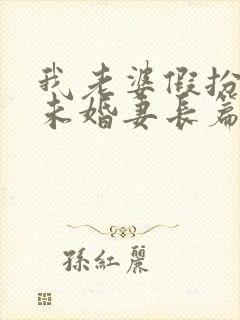 我老婆假扮
未婚妻長篇
孫紅麗